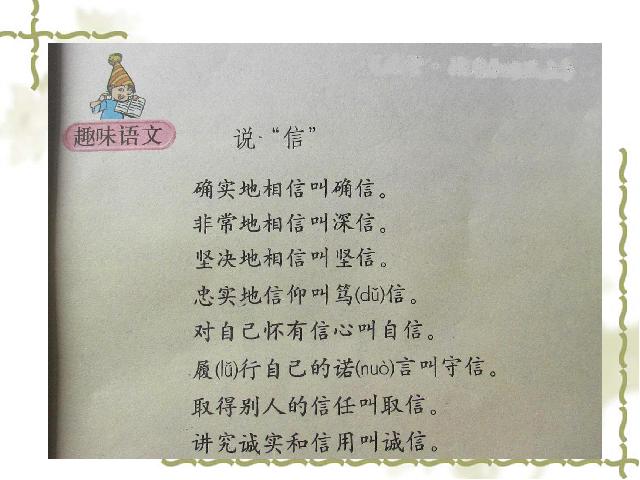 趣味语文
说“信”
确实地相信叫确信。
非常地相信叫深信。
坚决地相信叫坚信。
忠实地信仰叫笃(dǔ)信。
对自己怀有信心叫自信。
履(lǚ)行自己的诺(nuò)言叫守信。
取得别人的信任叫取信。
讲究诚实和信用叫诚信。